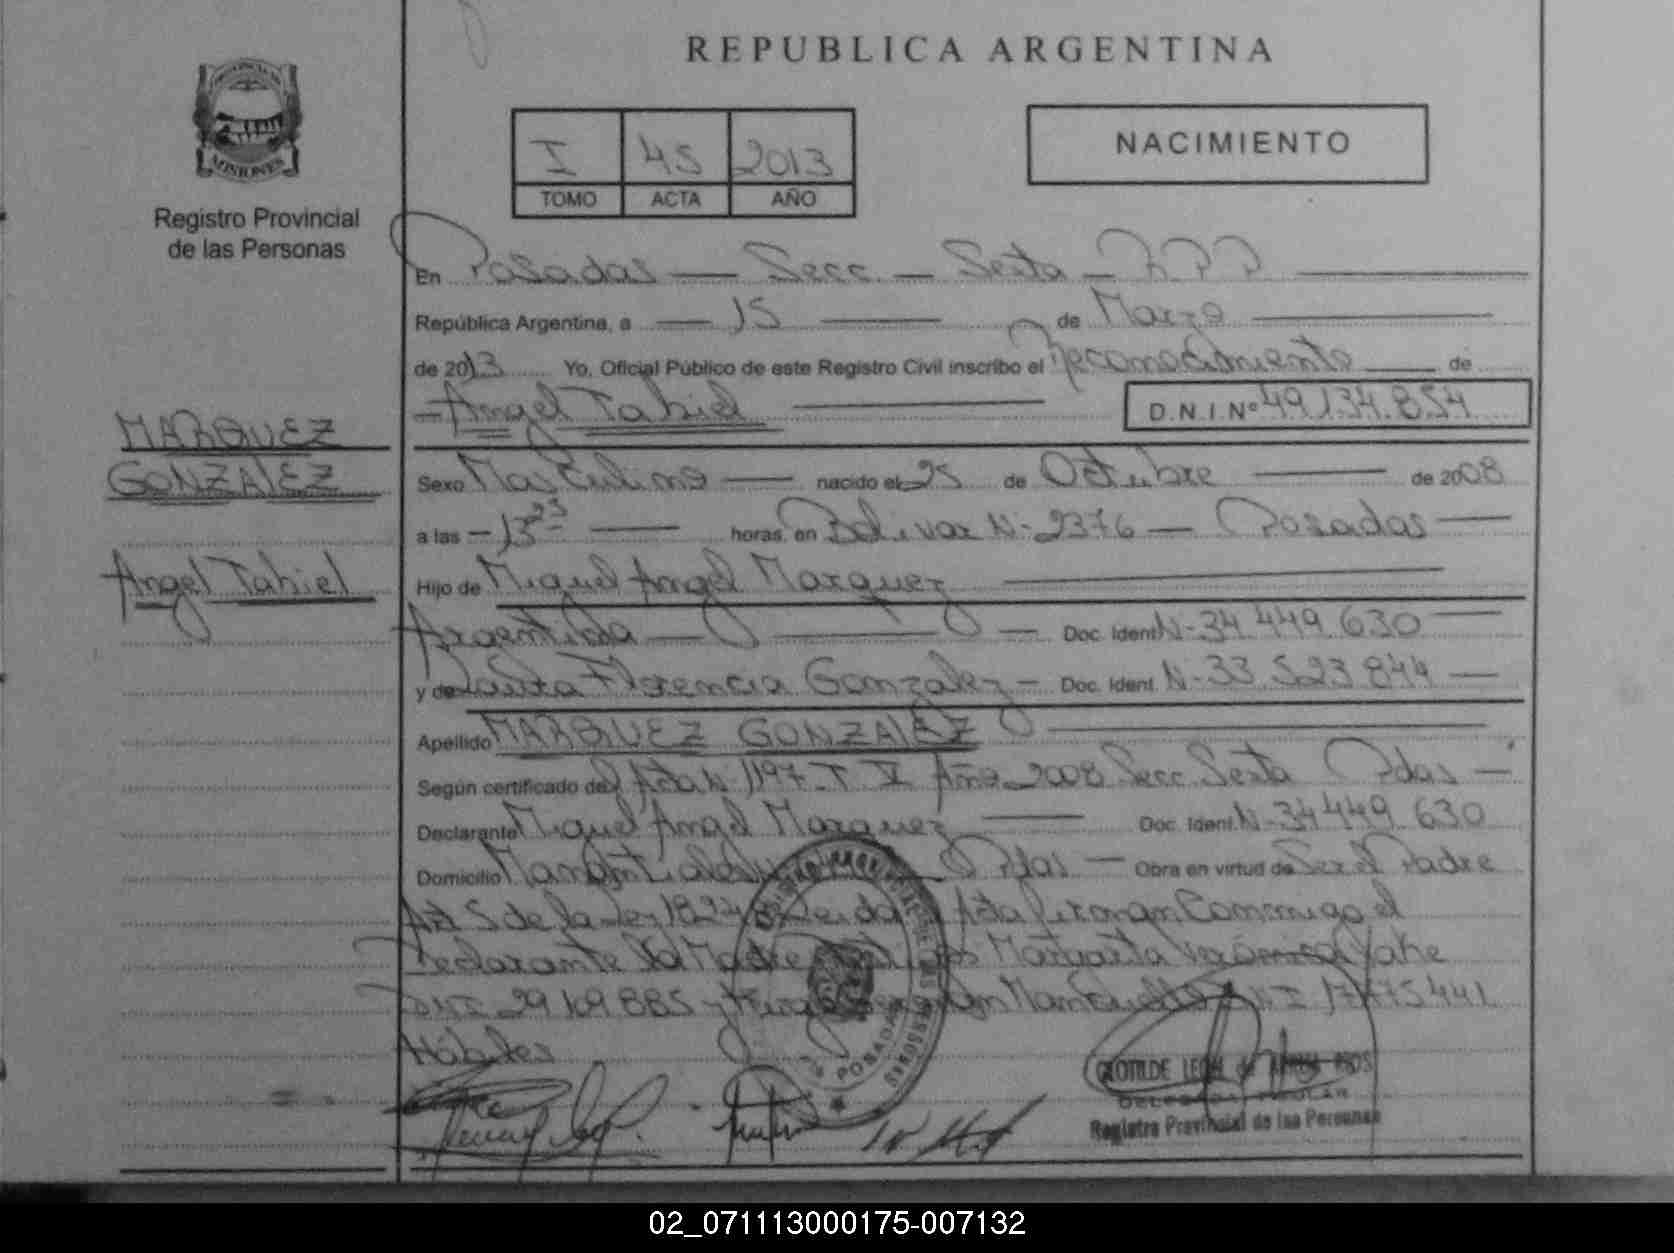 REPUBLICA ARGENTINA
PROVINCIA DE
MISIONES
Registro Provincial
de las Personas
I 45 2013
TOMO ACTA AÑO
NACIMIENTO
En Posadas — Secc. — Sexta — R P P
República Argentina, a — 15 — de Marzo
de 2013 Yo, Oficial Público de este Registro Civil inscribo el Reconocimiento de
Angel Tahiel D.N.I.Nº 49.134.854
MARQUEZ
GONZALEZ
Angel Tahiel
Sexo Masculino — nacido el 25 de Octubre — de 2008
a las — 13 23 — horas, en Bolivar N- 2376 — Posadas —
Hijo de Miguel Angel Marquez
Argentina — Doc. Ident. N- 34 449 630
y de Laura Florencia Gonzalez — Doc. Ident. N- 33 523 844 —
Apellido MARQUEZ GONZALEZ
Según certificado del Acta N 1197 T IV Año 2008 Secc Sexta Pdas —
Declarante Miguel Angel Marquez — Doc. Ident. N- 34 449 630
Domicilio Pdas — Obra en virtud de Ser el Padre
Art 5 de la Ley 18248 Leida el Acta firman Conmigo el
Declarante la Madre Margarita Verónica Yahe
DNI 29 109 885 y DNI 17 775 441
Hábiles
POSADAS
MISIONES
CLOTILDE
Registro Provincial de las Personas
02_071113000175-007132